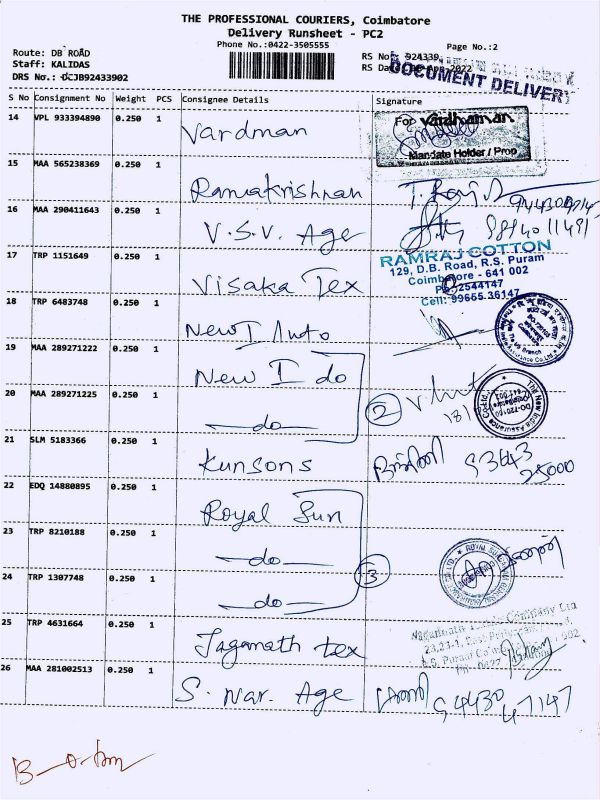 THE PROFESSIONAL COURIERS, Coimbatore
Delivery Runsheet - PC2
Phone No.:0422-3505555
Page No.:2
Route: DB ROAD
Staff: KALIDAS
DRS No.: DCJB92433902
RS No.: 924339
RS Da
2022
DOCUMENT DELIVERY
S No Consignment No Weight PCS Consignee Details Signature
14 VPL 933394890 0.250 1 Vardman
For Vardhaman
Mandate Holder / Prop
15 MAA 565238369 0.250 1 Ramakrishnan
16 MAA 290411643 0.250 1 V.S.V. Age 9894011491
RAMRAJ COTTON
129, D.B. Road, R.S. Puram
Coimbatore - 641 002
Ph: 2544147
Cell: 99655 36147
17 TRP 1151649 0.250 1 Visaka Tex
18 TRP 6483748 0.250 1 New I Auto
19 MAA 289271222 0.250 1 New I do
20 MAA 289271225 0.250 1 do 2
The New India Assurance Co. Ltd.
21 SLM 5183366 0.250 1 Kunsons 93643
25000
22 EDQ 14880895 0.250 1 Royal Sun
23 TRP 8210188 0.250 1 do 3
24 TRP 1307748 0.250 1 do
ROYAL SUN
25 TRP 4631664 0.250 1 Jaganath tex
Company Ltd
26 MAA 281002513 0.250 1 S. Nar. Age 94430
47147